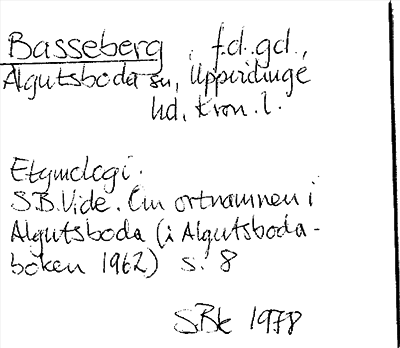 Basseberg, f.d. gd.,
Algutsboda sn, Uppvidinge
hd, Kron. l.
Etymologi.
S.B. Vide. Om ortnamnen i
Algutsboda (i Algutsboda-
boken 1962) s. 8
SBk 1978